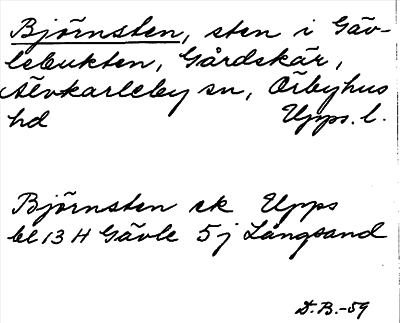 Björnsten, sten i Gäv-
lebukten, Gårdskär,
Älvkarleby sn, Örbyhus
hd Upps. l.
Björnsten ek Upps
bl 13 H Gävle 5 j Långsand
D.B.-59